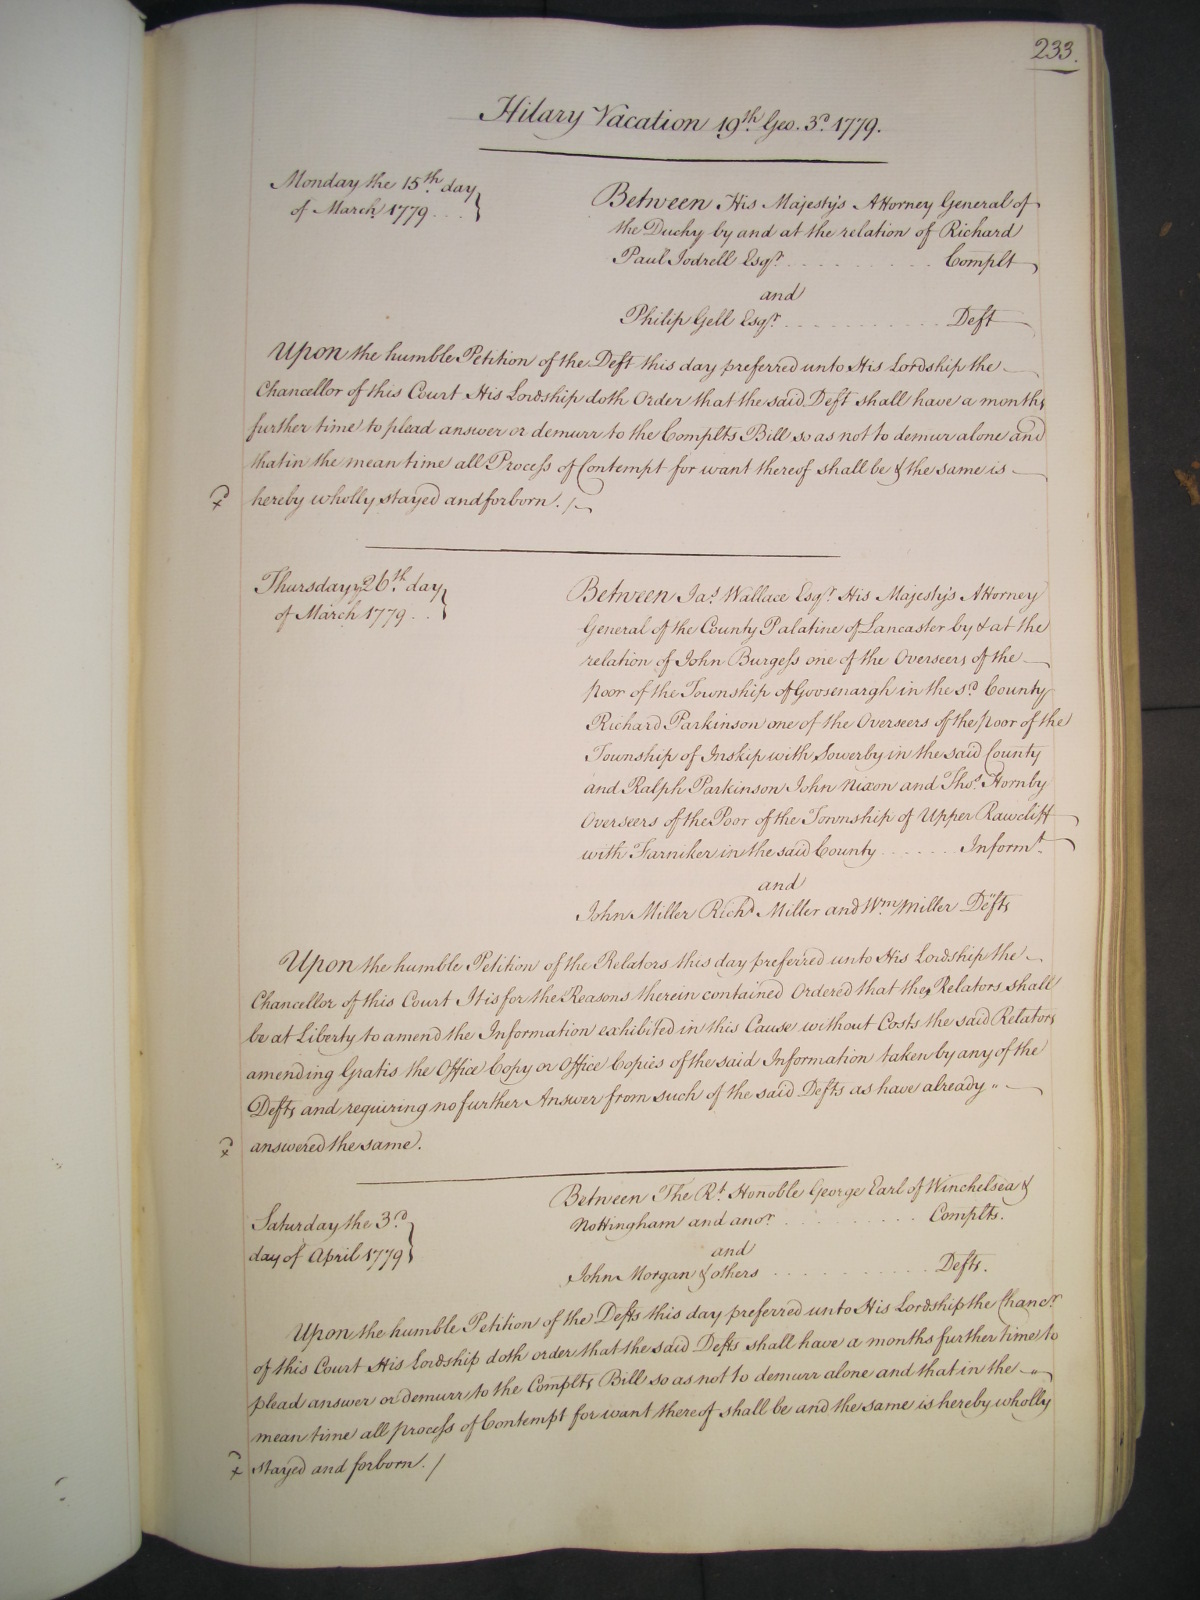 233.
Hilary Vacation 19th Geo. 3d. 1779.
Monday the 15th day
of March 1779 . . .
Between His Majesty's Attorney General of
the Duchy by and at the relation of Richard
Paul Jodrell Esqr. . . . . . . . . . Complt
and
Philip Gell Esqr. . . . . . . . . . . Deft
Upon the humble Petition of the Deft this day preferred unto His Lordship the
Chancellor of this Court His Lordship doth Order that the said Deft shall have a months
further time to plead answer or demurr to the Complts Bill so as not to demur alone and
that in the mean time all Process of Contempt for want thereof shall be & the same is
hereby wholly stayed and forborn. /
Thursday 26th day
of March 1779 . . .
Between Jas. Wallace Esqr. His Majesty's Attorney
General of the County Palatine of Lancaster by & at the
relation of John Burgess one of the Overseers of the
poor of the Township of Goosenargh in the sd. County
Richard Parkinson one of the Overseers of the poor of the
Township of Inskip with Sowerby in the said County
and Ralph Parkinson John Nixon and Thos. Hornby
Overseers of the Poor of the Township of Upper Rawcliff
with Tarniker in the said County . . . . . . Informt.
and
John Miller Richd. Miller and Wm. Miller Defts
Upon the humble Petition of the Relators this day preferred unto His Lordship the
Chancellor of this Court It is for the Reasons therein contained Ordered that the Relators shall
be at Liberty to amend the Information exhibited in this Cause without Costs the said Relators
amending Gratis the Office Copy or Office Copies of the said Information taken by any of the
Defts and requiring no further Answer from such of the said Defts as have already
answered the same.
Saturday the 3d.
day of April 1779
Between The Rt. Honoble George Earl of Winchelsea &
Nottingham and anor. . . . . . . . . . Complts.
and
John Morgan & others . . . . . . . . . . Defts.
Upon the humble Petition of the Defts this day preferred unto His Lordship the Chancr.
of this Court His Lordship doth order that the said Defts shall have a months further time to
plead answer or demurr to the Complts Bill so as not to demurr alone and that in the
mean time all process of Contempt for want thereof shall be and the same is hereby wholly
stayed and forborn. /